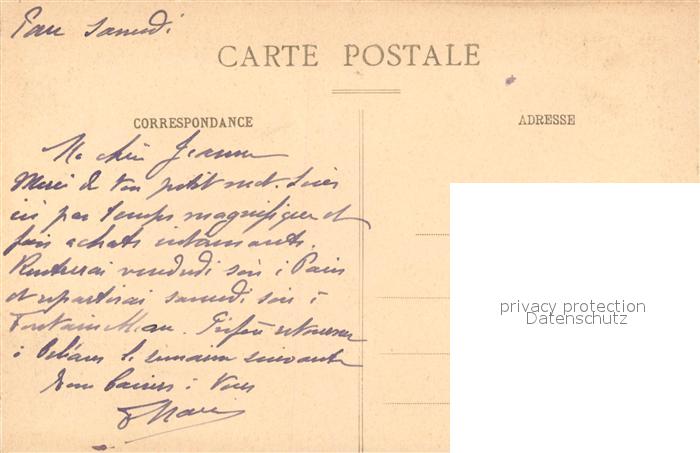 Pau Samedi
CARTE POSTALE
CORRESPONDANCE
ADRESSE
Ma chère Jeanne
Merci de ton petit mot. Suis
ici par temps magnifique et
fais achats intéressants.
Rentrerai vendredi soir à Paris
et repartirai samedi soir à
retourner
à Orléans la semaine suivante
Bons baisers à Vous
privacy protection
Datenschutz